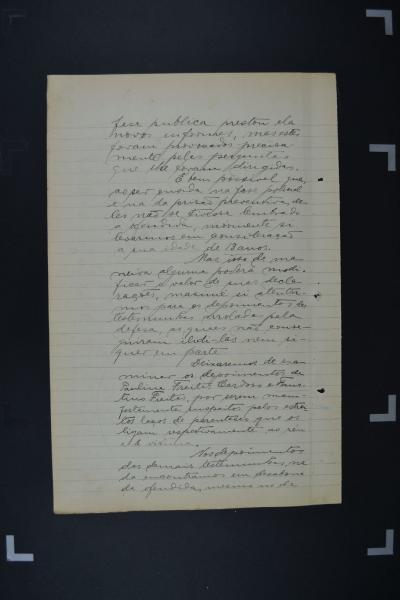 fase publica prestou ela
novos informes, mas estes
foram provocados precisa-
mente pelas perguntas
que lhe foram dirigidas.
E' bem possivel que,
ao ser ouvida na fase policial
e na da prisão preventiva, de-
les não se tivesse lembrado
a ofendida, mormente si
levarmos em consideração
a sua idade de 13 anos.
Mas isso de ma-
neira alguma poderá modi-
ficar o valor de suas decla-
rações, maxime si atentar-
mos para os depoimentos das
testemunhas arroladas pela
defesa, as quaes não conse-
guiram ilidi-las nem si-
quer em parte.
Deixaremos de exa-
minar os depoimentos de
Paulina Freitas Cardoso e Faus-
tino Freitas, por serem mani-
festamente suspeitos pelos estrei-
tos laços de parentesco que os
ligam respetivamente ao réu
e á vitima.
Nos depoimentos
das demais testemunhas, na-
da encontramos em desabono
da ofendida, mesmo no de